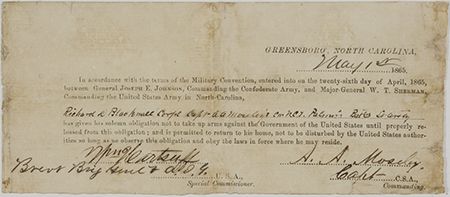 GREENSBORO, NORTH CAROLINA,
May 1st 1865.
In accordance with the terms of the Military Convention, entered into on the twenty-sixth day of April, 1865,
between General JOSEPH E. JOHNSON, Commanding the Confederate Army, and Major-General W. T. SHERMAN,
Commanding the United States Army in North-Carolina,
Richard D Blacknall Corpl
has given his solemn obligation not to take up arms against the Government of the United States until properly re-
leased from this obligation; and is permitted to return to his home, not to be disturbed by the United States author-
ities so long as he observe this obligation and obey the laws in force where he may reside.
Wm Hartsuff
Brevt Brig U. S. A.,
Special Commissioner.
H. A. Mosely
Capt C. S. A.,
Commanding.